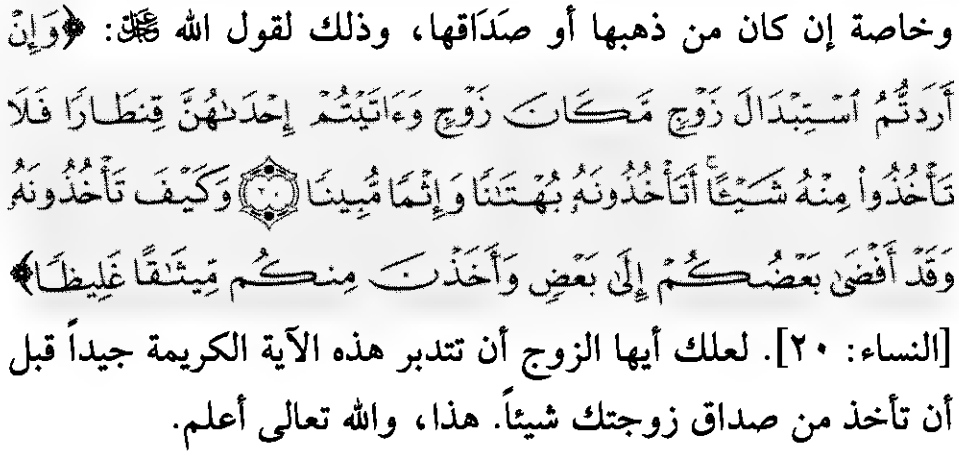 وخاصة إن كان من ذهبها أو صدَاقها، وذلك لقول الله ﷻ: ﴿وَإِنْ
أَرَدتُّمُ ٱسْتِبْدَالَ زَوْجٍ مَّكَانَ زَوْجٍ وَءَاتَيْتُمْ إِحْدَىٰهُنَّ قِنطَارًا فَلَا
تَأْخُذُوا۟ مِنْهُ شَيْـًٔا ۚ أَتَأْخُذُونَهُۥ بُهْتَـٰنًا وَإِثْمًا مُّبِينًا ۝٢٠ وَكَيْفَ تَأْخُذُونَهُۥ
وَقَدْ أَفْضَىٰ بَعْضُكُمْ إِلَىٰ بَعْضٍ وَأَخَذْنَ مِنكُم مِّيثَـٰقًا غَلِيظًا﴾
[النساء: ٢٠]. لعلك أيها الزوج أن تتدبر هذه الآية الكريمة جيداً قبل
أن تأخذ من صداق زوجتك شيئاً. هذا، والله تعالى أعلم.